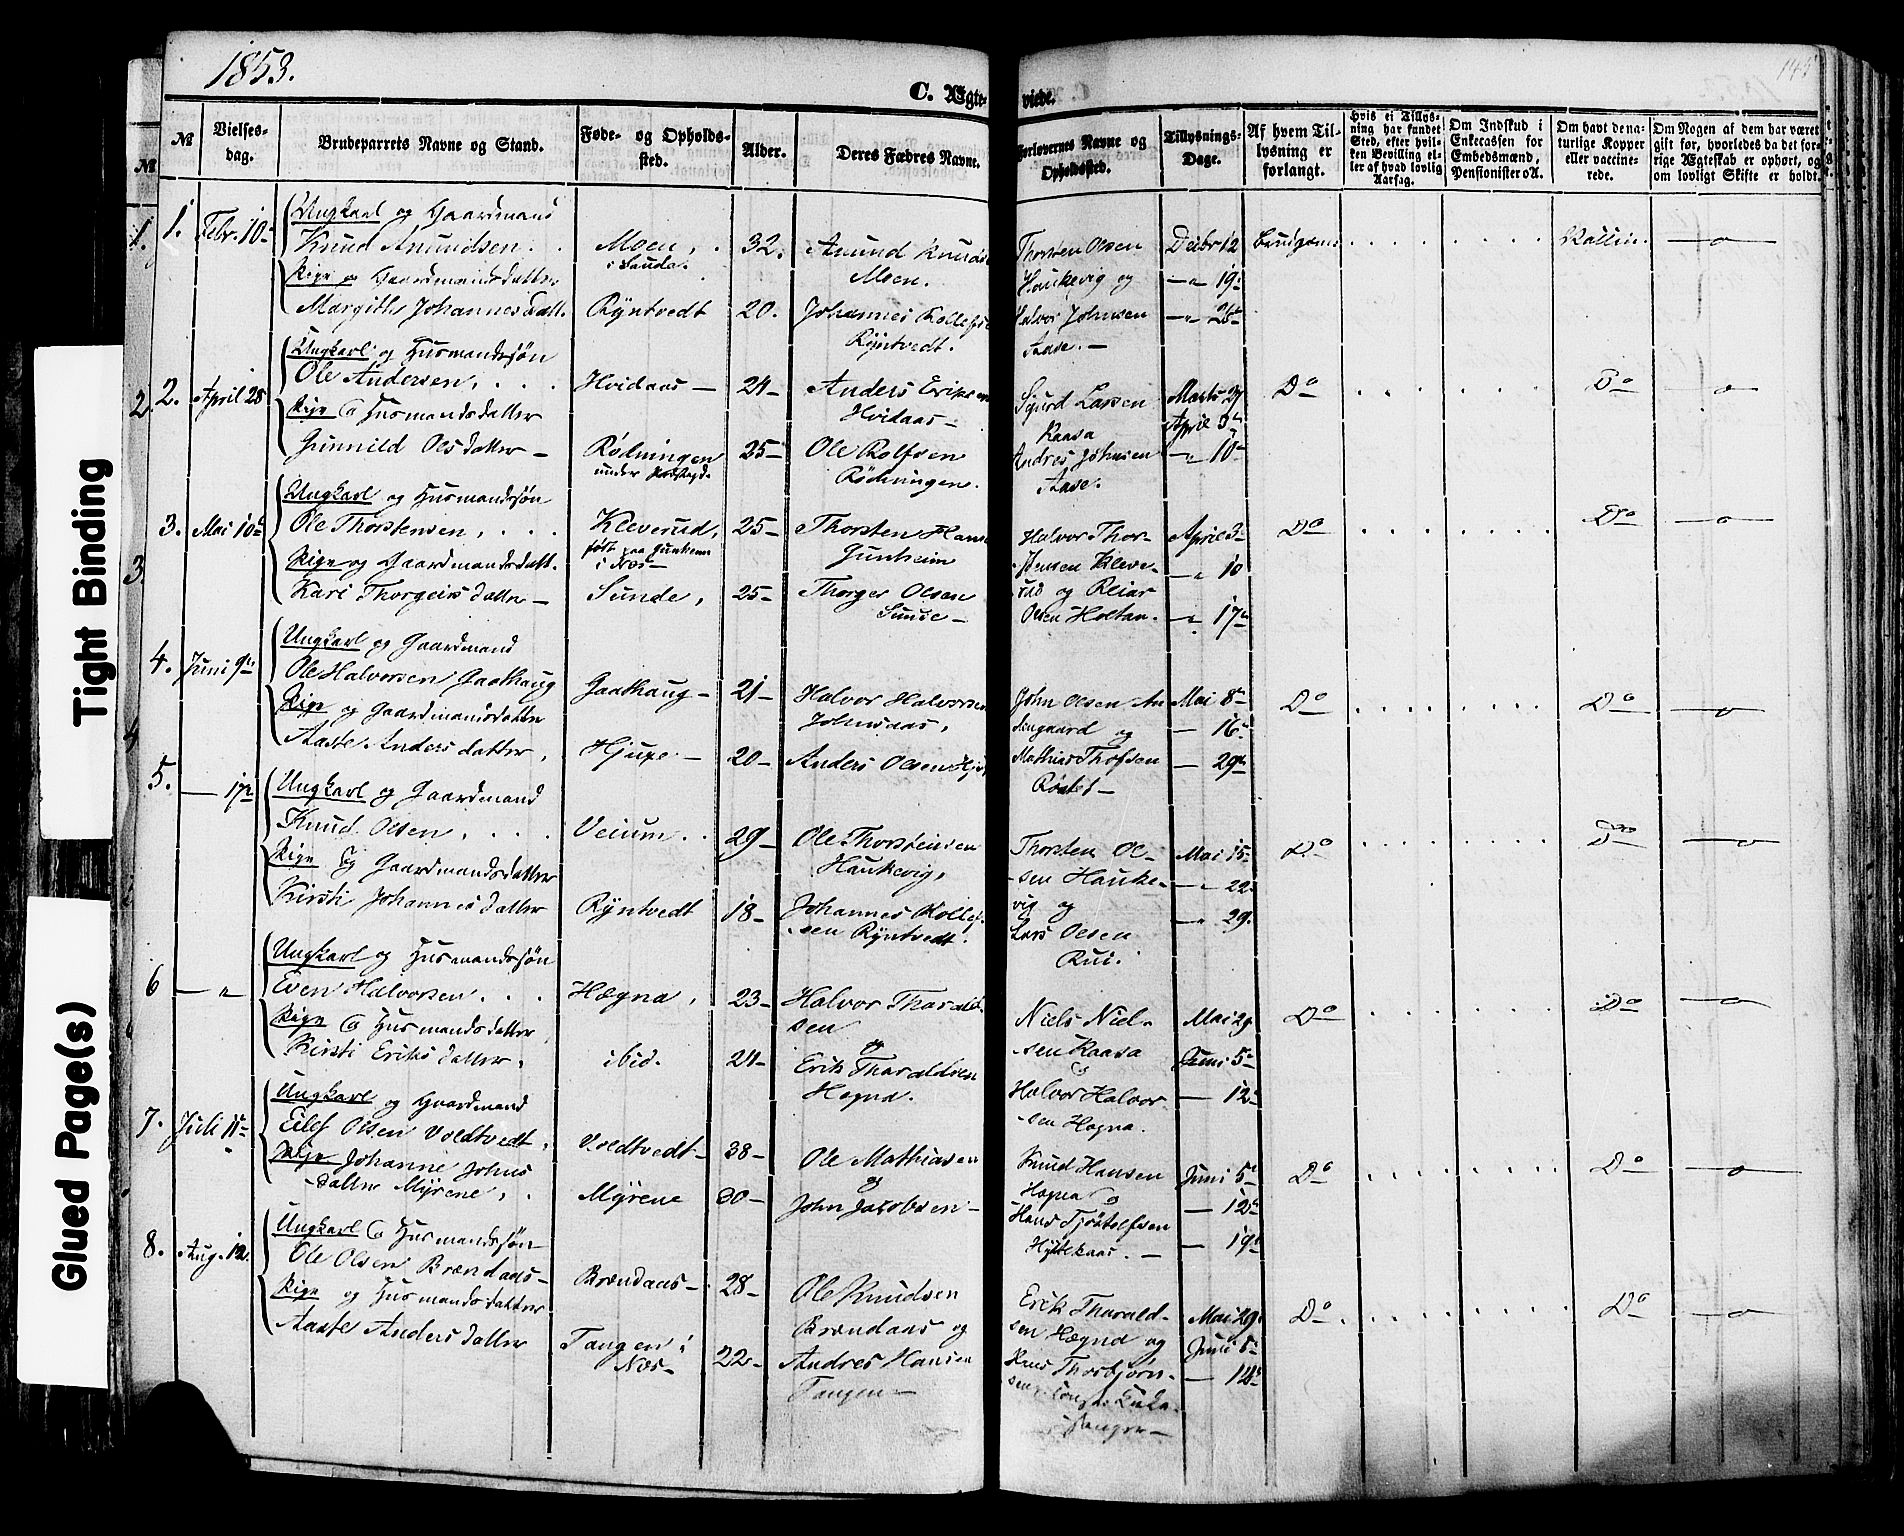 1853.
145
C. Ægte-
viede.
№
№
Vielses-
dag.
Brudeparrets Navne og Stand.
Føde- og Opholds-
sted.
Alder.
Deres Fædres Navne.
Forlovernes Navne og
Opholdssted.
Tillysnings-
Dage.
Af hvem Til-
lysning er
forlangt.
Hvis ei Tillys-
ning har fundet
Sted, efter hvil-
ken Bevilling el-
ler af hvad lovlig
Aarsag.
Om Indskud i
Enkecassen for
Embedsmænd,
Pensionister o.A.
Om havt de na-
turlige Kopper
eller vaccine-
rede.
Om Nogen af dem har været
gift før, hvorledes da det for-
rige Ægteskab er ophørt, og
om lovligt Skifte er holdt.
1.
1.
Febr. 10
Ungkarl og Gaardmand
Knud Anundsen
Pige og Gaardmandsdatter
Margith Johannesdatt.
Moen,
i Sauda.
Ryntvedt
32.
20.
Anund Knuds
Moen.
Johannes Kollefs
Ryntvedt.
Thorsten Olsen
Haukevig og
Halvor Johnsen
Aase.
Debr 12
19
26
Vaccin.
2.
2.
April 28
Ungkarl og Husmandssøn
Ole Andersen,
Pige og Husmandsdatter
Gunnild Olsdatter
Hvidaas
Rødningen
under
24
25
Anders Eriksen
Hvidaas
Ole Rolfsen
Rødningen.
Sigurd Larsen
Raasa
Andres Johnsen
Aase.
Marts 27
April 3
10
Do
Do
3.
3.
Mai 10
Ungkarl og Husmandssøn
Ole Thorstensen,
Pige og Gaardmandsdatt.
Kari Thorgeirsdatter
Kleverud,
født paa Gunheim
i Næs
Sunde,
25
25
Thorsten Hans
Gunheim
Thorger Olsen
Sunde
Halvor Thor-
stensen Kleve-
rud og Reiar
Olsen Holtan.
April 3
10
17
Do
Do
4
4.
Juni 9
Ungkarl og Gaardmand
Ole Halvorsen Gaathaug
Pige og Gaardmandsdatter
Aaste Andersdatter,
Gaathaug
Hjuxe
21
20
Halvor Halvorsen
Johnsaas,
Anders Olsen
John Olsen
og
Mathias
Mai 8
16
29
Do
Do
5.
17
Ungkarl og Gaardmand
Knud Olsen,
Pige og Gaardmandsdatter
Kirsti Johannesdatter
Veium
Ryntvedt
29
18
Ole Thorstensen
Haukevig,
Johannes Kollef-
sen Ryntvedt.
Thorsten Ol-
sen Hauke-
vig og
Lars Olsen
Rui.
Mai 15
22
29.
Do
Do
6
Ungkarl og Husmandssøn
Even Halvorsen
Pige og Husmandsdatter
Kirsti Eriksdatter,
Hægna,
ibid.
23
24
Halvor Tharald-
sen
og
Erik Tharaldsen
Hegna.
Niels Niel-
sen Raasa
&
Halvor Halvor-
sen Hægna.
Mai 29
Juni 5
12
Do
Do
7.
Juli 11
Ungkarl og Gaardmand
Eilef Olsen Voldtvedt,
Pige Johanne Johns
datter Myrene,
Voldtvedt
Myrene
38
30
Ole Mathiasen
og
John Jacobsen
Knud Hansen
Hægna og
Hans
Juni 5
12
19
Do
Do
8.
Aug. 12.
Ungkarl og Husmandssøn
Ole Olsen Brændaas
Pige og Husmandsdatter
Aaste Andersdatter
Brændaas
Tangen i
Næs
28
22
Ole Knudsen
Brændaas og
Andres Hansen
Tangen
Erik Tharald-
sen Hægna og
Hans Thorbjørn-
sen
Mai 29
Juni 5
12
Do
Do
Tight Binding
Glued Page(s)